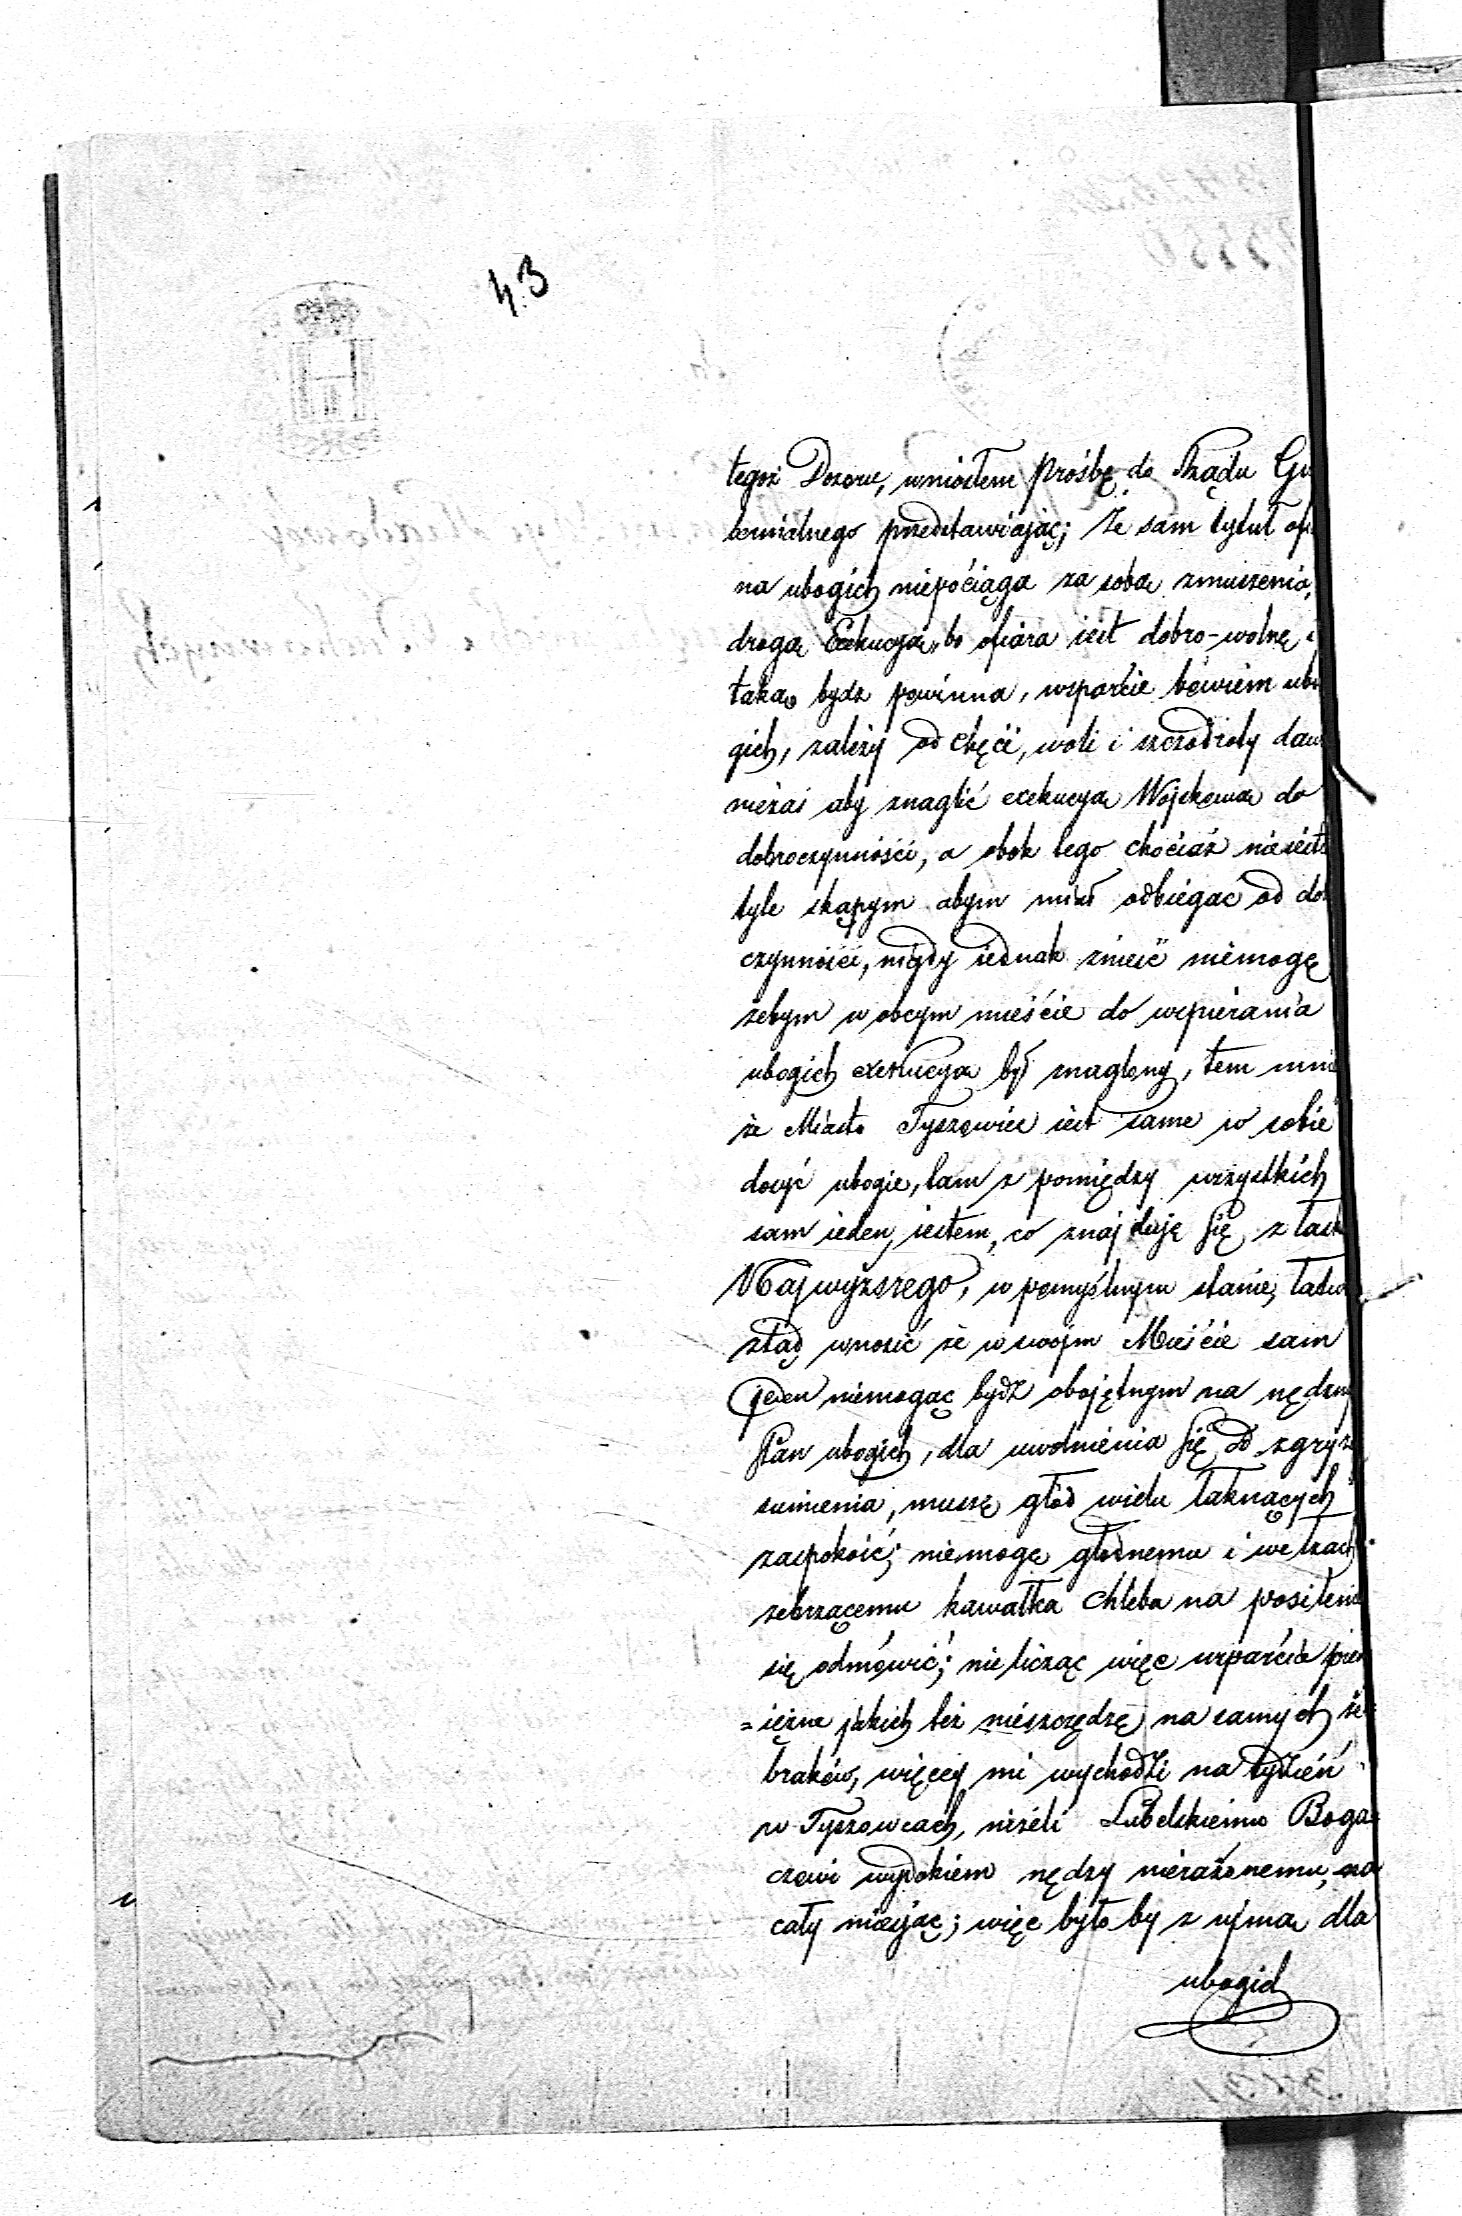 43
tegoż Dozoru, wniosłem prośbę do Rządu Gu
bernialnego przedstawiając; że sam tytuł ofi
na ubogich niepociąga za sobą zmuszenia,
drogą Exekucyi, bo ofiara iest dobro-wolną i
taką bydz powinna, wsparcie bowiem ubo
gich, zależy od chęci, woli i szczodroty daw
nieżaś aby znaglić exekucyą Wojskową do
dobroczynności, a obok tego chociaż nieiest
tyle skąpym abym miał odbiegac od do
czynności, nigdy iednak znieść niemogę
żebym w obcym mieście do wspierania
ubogich exekucyą był znaglony, tem mni
że Miasto Tyszowiec iest same w sobie
dosyć ubogie, tam z pomiędzy wszystkich
sam ieden, iestem, co znajduję się, z łask
Najwyższego, w pomyślnym stanie, łatwo
ztąd wnosić że w swojm Mieście sam
jeden niemogąc bydź obojętnym na nędzny
stan ubogich, dla uwolnienia się od zgryz
sumienia, muszę głód wielu łaknących
zaspokoić; niemogę głodnemu i we łzach
żebrzącemu kawałka chleba na posilenie
się odmówić; nie licząc więc wsparcia pien
=iężne jakich też nieszczędzę na samych że
braków, więcey mi wychodzi na tydzień
w Tyszowcach, niżeli Lubelskiemu Boga
czowi widokiem nędzy nierażonemu, na
cały miesjąc; więc było by z ujmą dla
ubogich